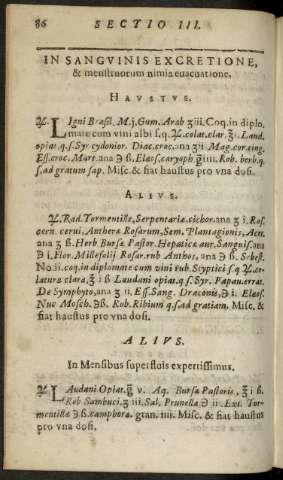 86 SECTIO III.
IN SANGVINIS EXCRETIONE,
& menstruorum nimia euacuatione.
HAVSTVS.
℞. LIgni Brasil. M.j. Gum. Arab ʒiii. Coq. in diplo,
mate cum vini albi s.q. ℞. colat. clar. ℥. i. Laud.
opiat q. s. Syr cydonior. Diac. croc. ana ʒ ii. Mag. cor. ang.
Ess. croc. Mart. ana ℈ ß. Elæos. caryoph. iiii. Rob. berb. q.
s. ad gratum sap. Misc. & fiat haustus pro vna dosi.
ALIVS.
℞. Rad. Tormentillæ, Serpentariæ. cichor. ana ʒ i. Ras.
cern. cerui, Anthera Rosarum, Sem. Plantaginis, Acet.
ana ʒ ß. Herb Bursæ Pastor. Hepaticæ aur. Sanguis. ana
℈ i. Flor. Millefolij Rosar. rub Anthos, ana ℈ ß. Sebest.
No. ii. coq in diplomate cum vini rub. Styptici s.q ℞.
latura clara, ℥ i ß Laudani opiat. q. s. Syr. Papau. errat.
De Symphyto, ana ʒ ii. Ess. Sang. Draconis, ℈ i. Elæos.
Nuc Mosch. ℈ß. Rob. Ribium q. s. ad gratiam. Misc. &
fiat haustus pro vna dosi.
ALIVS.
In Mensibus superfluis expertissimus.
℞. LAudani Opiat. v. Aq. Bursæ Pastoris, ℥ i ß.
Rob Sambuci. ʒ iii. Sal. Prunellæ ℈ ii. Ext. Tor-
mentillæ ℈ ß. camphoræ. gran. iiij. Misc. & fiat haustus
pro vna dosi.